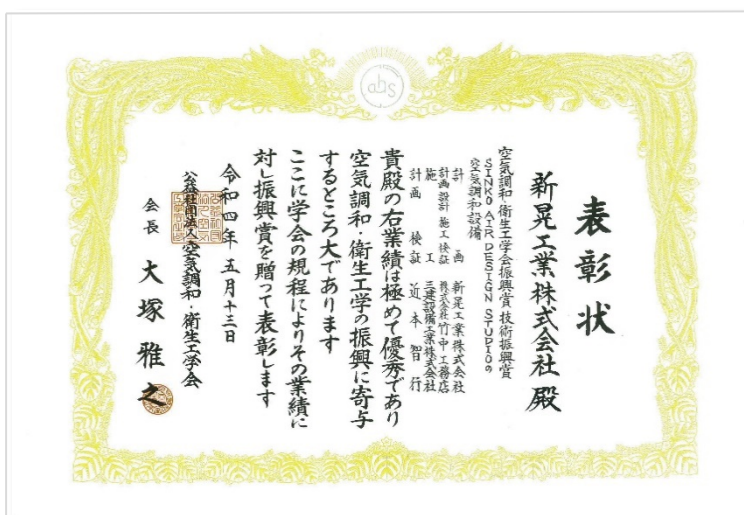 表彰状
新晃工業株式会社 殿
空気調和・衛生工学会振興賞 技術振興賞
SINKO AIR DESIGN STUDIOの
空気調和設備
計画 新晃工業株式会社
計画 設計 施工 検証 株式会社竹中工務店
施工 三建設備工業株式会社
計画 検証 近本智行
貴殿の右業績は極めて優秀であり
空気調和・衛生工学の振興に寄与
するところ大であります
ここに学会の規程によりその業績に
対し振興賞を贈って表彰します
令和四年五月十三日
公益社団法人 空気調和・衛生工学会
会長 大塚雅之